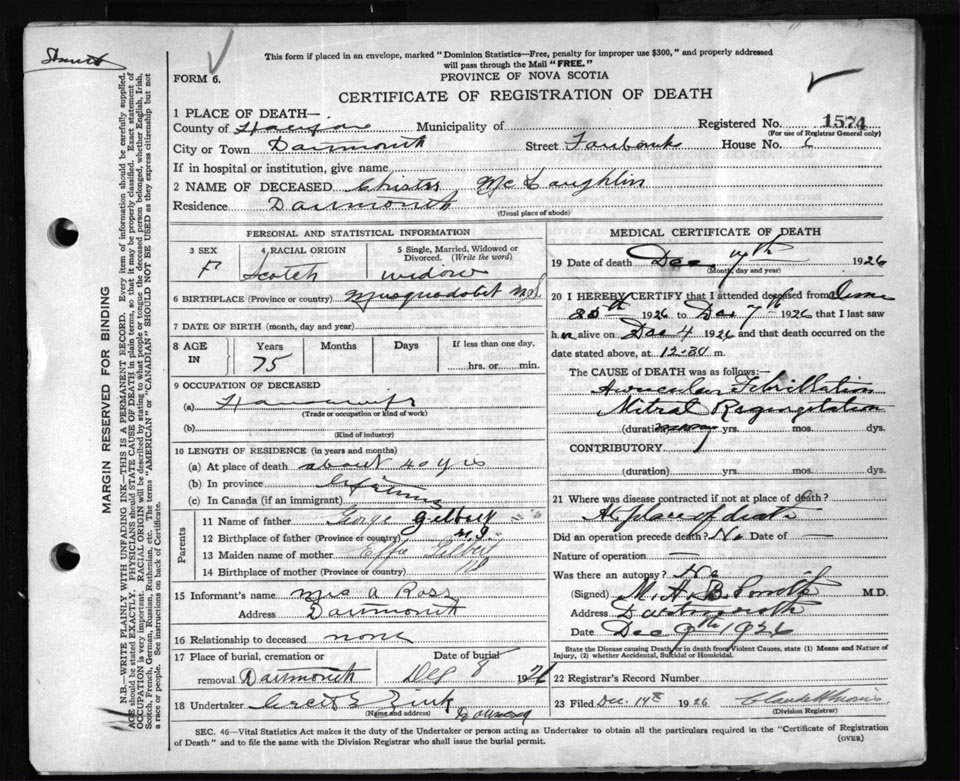 Smith
This form if placed in an envelope, marked "Dominion Statistics—Free, penalty for improper use $300," and properly addressed
will pass through the Mail "FREE."
FORM 6.
PROVINCE OF NOVA SCOTIA
CERTIFICATE OF REGISTRATION OF DEATH
1 PLACE OF DEATH—
Registered No. 1574
(For use of Registrar General only)
County of Halifax Municipality of
City or Town Dartmouth Street Fairbanks House No. 6
If in hospital or institution, give name
2 NAME OF DECEASED Christy McLaughlin
Residence Dartmouth
(Usual place of abode)
PERSONAL AND STATISTICAL INFORMATION
3 SEX F
4 RACIAL ORIGIN Scotch
5 Single, Married, Widowed or Divorced. (Write the word) widow
6 BIRTHPLACE (Province or country) Musquodobit
7 DATE OF BIRTH (month, day and year)
8 AGE IN Years 75 Months Days If less than one day, hrs. or min.
9 OCCUPATION OF DECEASED
(a) Housewife
(Trade or occupation or kind of work)
(b)
(Kind of industry)
10 LENGTH OF RESIDENCE (in years and months)
(a) At place of death about 40 yrs
(b) In province lifetime
(c) In Canada (if an immigrant)
Parents
11 Name of father George Gilbert
12 Birthplace of father (Province or country) N.S.
13 Maiden name of mother Effie Gilbert
14 Birthplace of mother (Province or country)
15 Informant's name Mrs A Ross
Address Dartmouth
16 Relationship to deceased none
17 Place of burial, cremation or removal Dartmouth
Date of burial Dec 8 1926
18 Undertaker Zink
(Name and address)
MEDICAL CERTIFICATE OF DEATH
19 Date of death Dec 7th 1926
(Month, day and year)
20 I HEREBY CERTIFY that I attended deceased from
1926 to Dec 7th 1926 that I last saw
h er alive on Dec 4 1926 and that death occurred on the
date stated above, at 12-30 m.
The CAUSE of DEATH was as follows:—
Auricular Febrillation
Mitral Regurgitation
(duration) many yrs. mos. dys.
CONTRIBUTORY
(duration) yrs. mos. dys.
21 Where was disease contracted if not at place of death?
At place of death
Did an operation precede death? No Date of —
Nature of operation —
Was there an autopsy? No
(Signed) M.A.B. Smith M.D.
Address Dartmouth
Date Dec 9th 1926
State the Disease causing Death or in death from Violent Causes, state (1) Means and Nature of
Injury, (2) whether Accidental, Suicidal or Homicidal.
22 Registrar's Record Number
23 Filed Dec. 14th 1926
(Division Registrar)
SEC. 46—Vital Statistics Act makes it the duty of the Undertaker or person acting as Undertaker to obtain all the particulars required in the "Certificate of Registration
of Death" and to file the same with the Division Registrar who shall issue the burial permit.
(OVER)
MARGIN RESERVED FOR BINDING
N.B.—WRITE PLAINLY WITH UNFADING INK—THIS IS A PERMANENT RECORD. Every item of information should be carefully supplied.
AGE should be stated EXACTLY. PHYSICIANS should STATE CAUSE OF DEATH in plain terms, so that it may be properly classified. Exact statement of
OCCUPATION is very important. RACIAL ORIGIN will be described by stating to what people or tongue the deceased person belonged, whether English, Irish,
Scotch, French, German, Russian, Ruthenian, etc. The terms "AMERICAN" or "CANADIAN" SHOULD NOT BE USED as they express citizenship but not
a race or people. See instructions on back of Certificate.